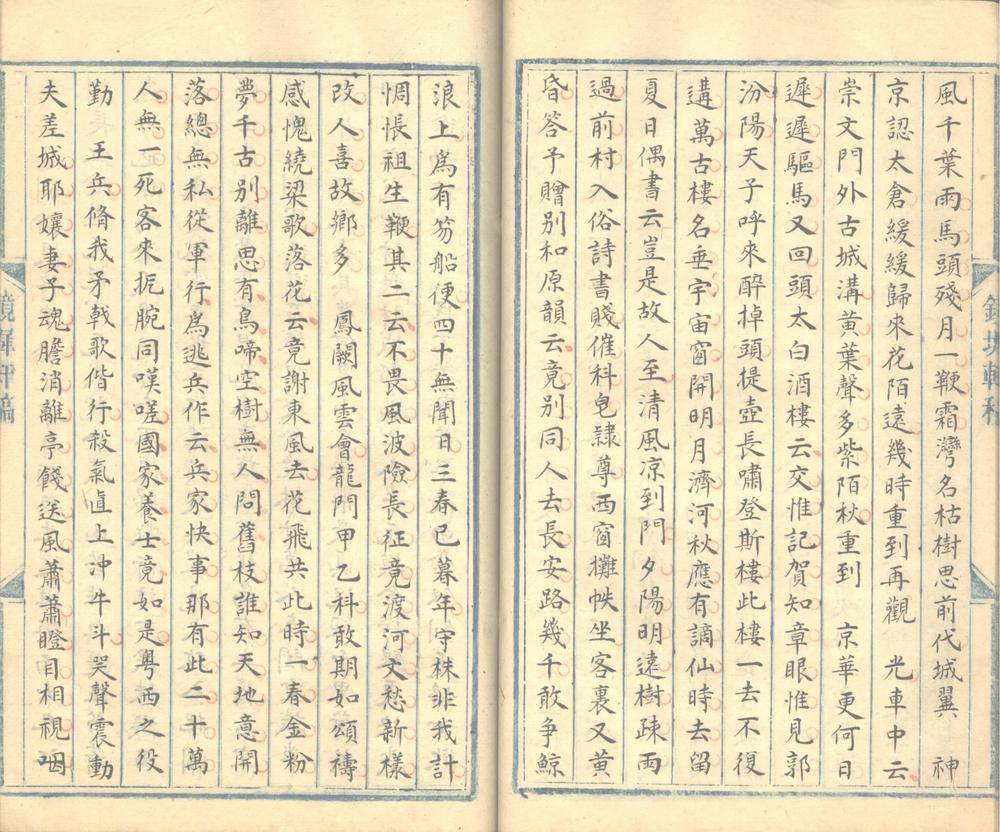 風千葉雨馬頭殘月一鞭霜灣名枯樹思前代城翼　神
京認太倉緩緩歸來花陌遠幾時重到再觀　光車中云
崇文門外古城溝黃葉聲多紫陌秋重到　京華更何日
遲遲驅馬又回頭太白酒樓云交惟記賀知章眼惟見郭
汾陽天子呼來醉掉頭提壺長嘯登斯樓此樓一去不復
遘萬古樓名垂宇宙窗開明月濟河秋應有謫仙時去留
夏日偶書云豈是故人至清風凉到門夕陽明遠樹疎雨
過前村入俗詩書賤催科皂隷尊西窗攤帙坐客裏又黃
昏答予贈別和原韻云竟別同人去長安路幾千敢争鯨
浪上爲有笏船便四十無聞日三春已暮年守株非我計
惆悵祖生鞭其二云不畏風波險長征竟渡河文愁新樣
改人喜故鄉多　鳳闕風雲會龍門甲乙科敢期如頌禱
感愧繞梁歌落花云竟謝東風去花飛共此時一春金粉
夢千古別離思有鳥啼空樹無人問舊枝誰知天地意開
落總無私從軍行爲逃兵作云兵家快事那有此二十萬
人無一死客來扼腕同嘆嗟國家養士竟如是粵西之役
勤　王兵脩我矛戟歌偕行殺氣直上冲牛斗哭聲震動
夫差城耶孃妻子魂膽消離亭餞送風蕭蕭瞪目相視咽